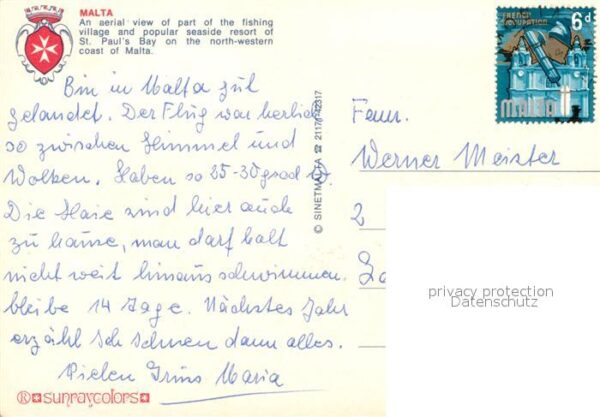 MALTA
An aerial view of part of the fishing
village and popular seaside resort of
St. Paul's Bay on the north-western
coast of Malta.
FRENCH
OCCUPATION
6d
MALTA
Bin in Malta gut
gelandet. Der Flug war herrlich
so zwischen Himmel und
Wolken. Haben so 25-30 grad
Die Haie sind hier auch
zu hause, man darf halt
nicht weit hinaus schwimmen.
bleibe 14 Tage. Nächstes Jahr
erzähl ich Ihnen dann alles.
Vielen Gruss Maria
® sunraycolors
© SINETMALTA ☎ 21171-42317
Fam.
Werner Meister
2
privacy protection
Datenschutz